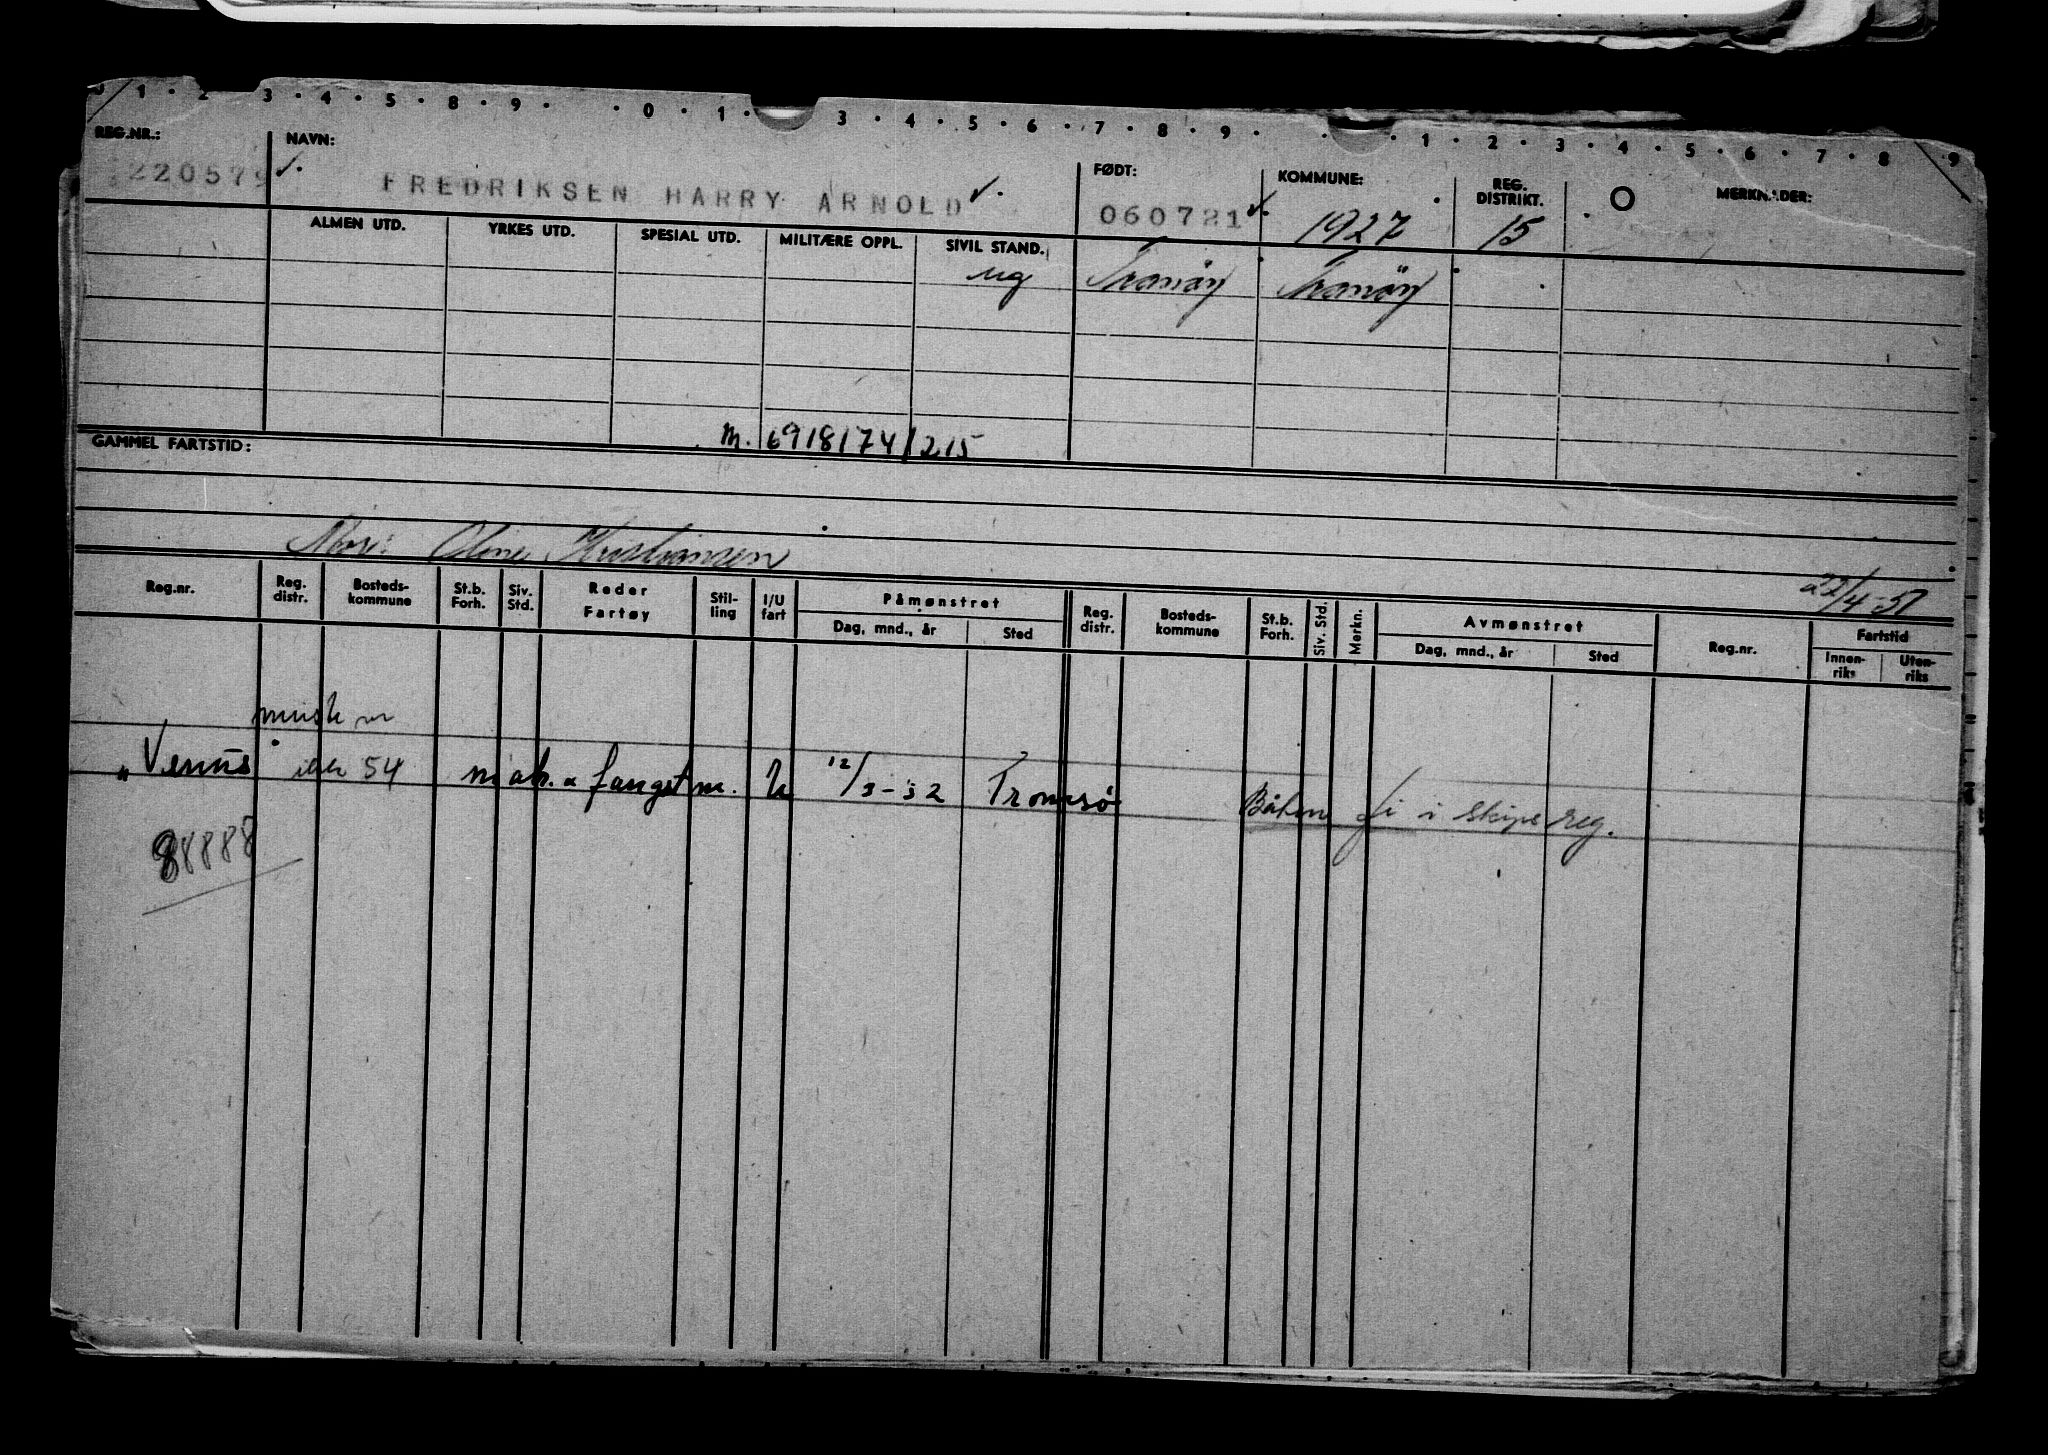 1 · 2 3 · 4 · 5 · 8 · 9 · · 0 · 1 · 3 · 4 · 5 · 6 · 7 · 8 · 9 · · 1 · 2 · 3 · 4 · 5 · 6 · 7 · 8 9
REG.NR.: NAVN: FØDT: KOMMUNE: REG. DISTRIKT. MERKNADER:
220579 FREDRIKSEN HARRY ARNOLD 060721 1927 15
ALMEN UTD. YRKES UTD. SPESIAL UTD. MILITÆRE OPPL. SIVIL STAND.
ug Tranöy Tranöy
GAMMEL FARTSTID: M. 6918174/215
Mor: Oline Kristiansen
22/4-51
Reg.nr. Reg. distr. Bosteds-kommune St.b. Forh. Siv. Std. Reder Fartøy Stil-ling I/U fart Påmønstret Reg. distr. Bosteds-kommune St.b. Forh. Siv. Std. Merkn. Avmønstret Reg.nr. Fartstid
Dag, mnd., år Sted Dag, mnd., år Sted Innen-riks Uten-riks
"Venus" 54 fangstm. U 12/3-52 Tromsø Båten i skipsreg.
88888